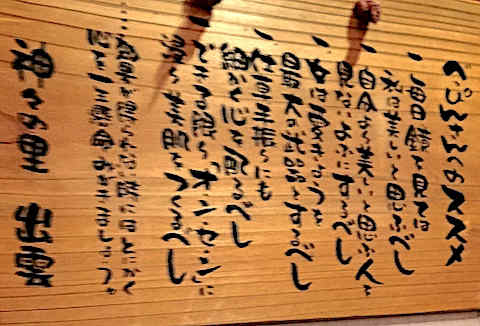 べっぴんさんのススメ
一 毎日鏡を見ては
私は美しいと思ふべし
一 自分より美しいと思ふ人を
見ないようにするべし
一 女は愛きょうを
最大の武器とするべし
一 仕草手振りにも
細かく心を配るべし
一 できる限り「オンセン」に
浸り美肌をつくるべし
…容姿が限られない際にはとにかく
心を一生懸命みがきましょう。
神々の里 出雲